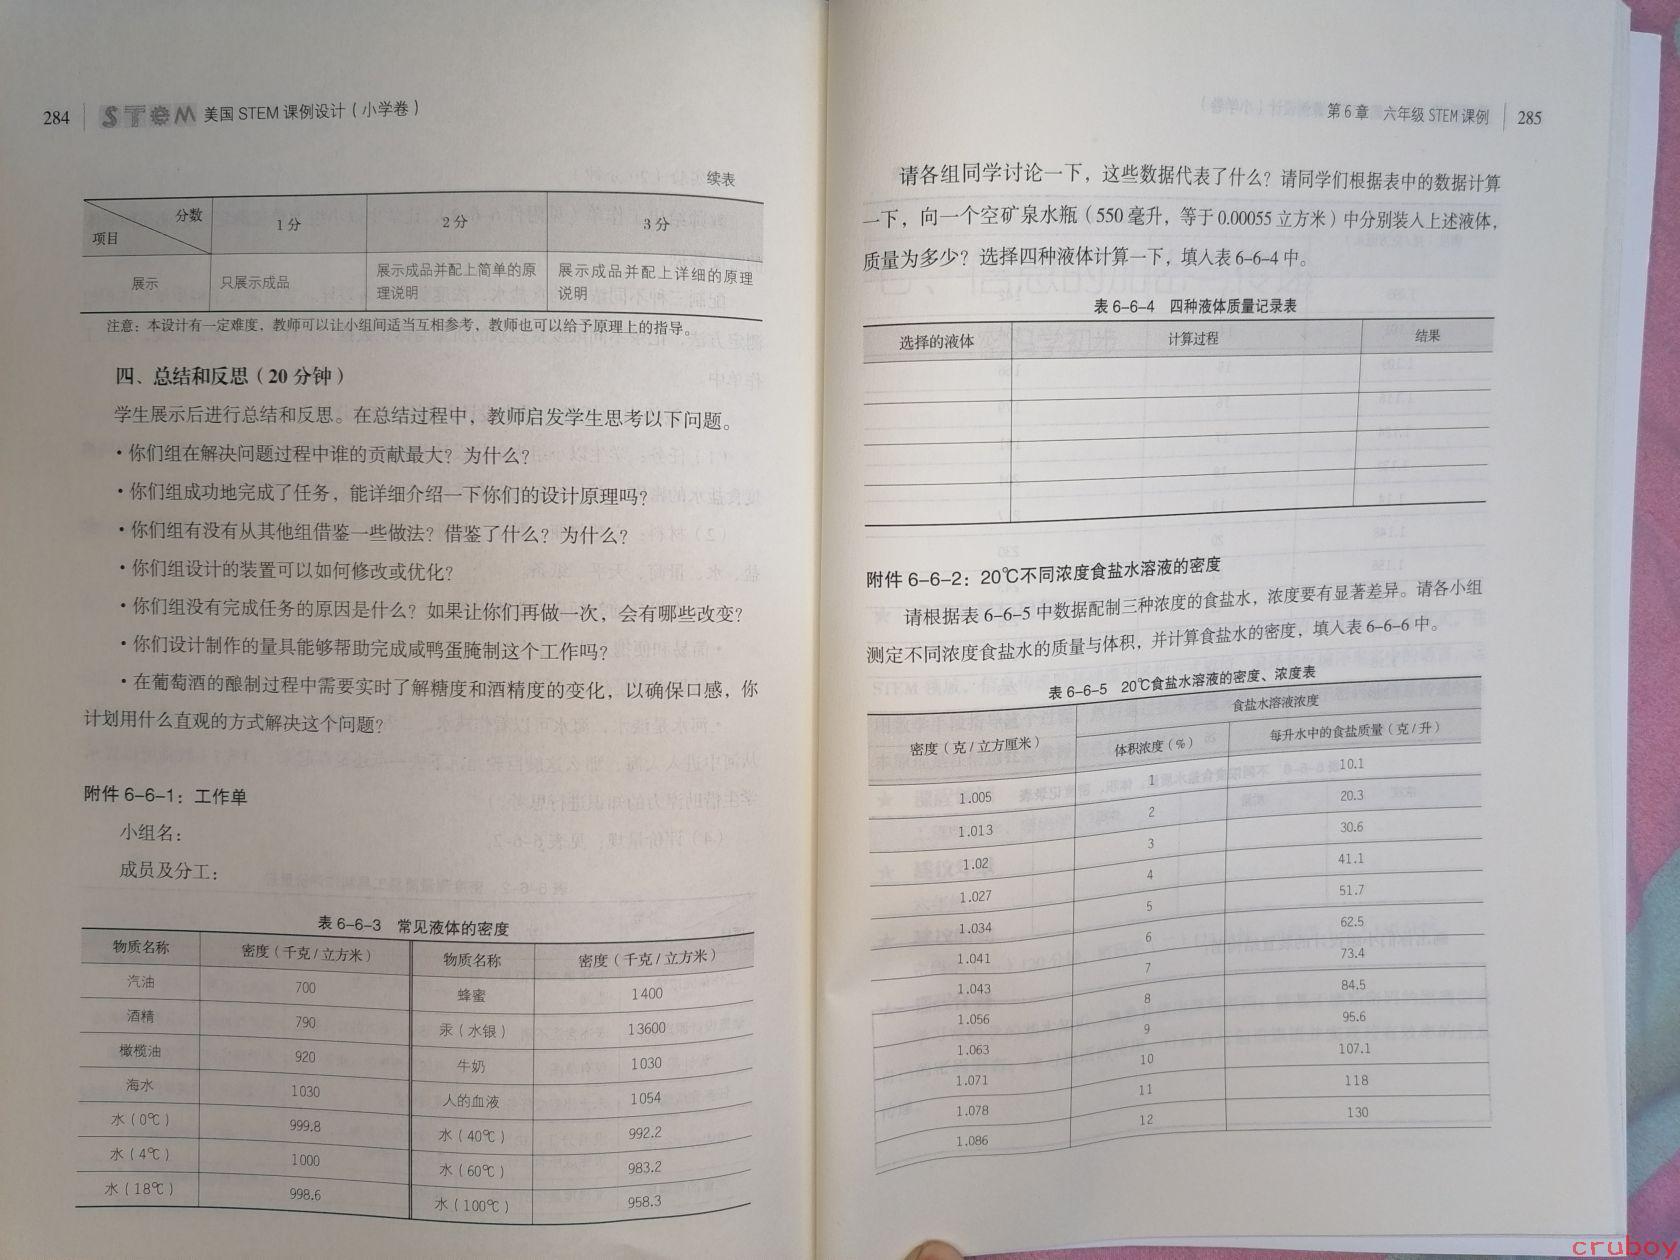 284 STEM 美国 STEM 课例设计(小学卷)
续表
分数 1分 2分 3分
项目
展示 只展示成品 展示成品并配上简单的原理说明 展示成品并配上详细的原理说明
注意：本设计有一定难度，教师可以让小组间适当互相参考，教师也可以给予原理上的指导。
四、总结和反思(20 分钟)
学生展示后进行总结和反思。在总结过程中，教师启发学生思考以下问题。
·你们组在解决问题过程中谁的贡献最大？为什么？
·你们组成功地完成了任务，能详细介绍一下你们的设计原理吗？
·你们组有没有从其他组借鉴一些做法？借鉴了什么？为什么？
·你们组设计的装置可以如何修改或优化？
·你们组没有完成任务的原因是什么？如果让你们再做一次，会有哪些改变？
·你们设计制作的量具能够帮助完成咸鸭蛋腌制这个工作吗？
·在葡萄酒的酿制过程中需要实时了解糖度和酒精度的变化，以确保口感，你
计划用什么直观的方式解决这个问题？
附件 6-6-1：工作单
小组名：
成员及分工：
表 6-6-3 常见液体的密度
物质名称 密度(千克/立方米) 物质名称 密度(千克/立方米)
汽油 700 蜂蜜 1400
酒精 790 汞(水银) 13600
橄榄油 920 牛奶 1030
海水 1030 人的血液 1054
水(0℃) 999.8 水(40℃) 992.2
水(4℃) 1000 水(60℃) 983.2
水(18℃) 998.6 水(100℃) 958.3
第6章 六年级 STEM 课例 285
请各组同学讨论一下，这些数据代表了什么？请同学们根据表中的数据计算
一下，向一个空矿泉水瓶(550 毫升，等于 0.00055 立方米)中分别装入上述液体，
质量为多少？选择四种液体计算一下，填入表 6-6-4 中。
表 6-6-4 四种液体质量记录表
选择的液体 计算过程 结果
附件 6-6-2：20℃不同浓度食盐水溶液的密度
请根据表 6-6-5 中数据配制三种浓度的食盐水，浓度要有显著差异。请各小组
测定不同浓度食盐水的质量与体积，并计算食盐水的密度，填入表 6-6-6 中。
表 6-6-5 20℃食盐水溶液的密度、浓度表
密度(克/立方厘米) 食盐水溶液浓度
体积浓度(%) 每升水中的食盐质量(克/升)
1.005 1 10.1
1.013 2 20.3
1.02 3 30.6
1.027 4 41.1
1.034 5 51.7
1.041 6 62.5
1.043 7 73.4
1.056 8 84.5
1.063 9 95.6
1.071 10 107.1
1.078 11 118
1.086 12 130
cruboy